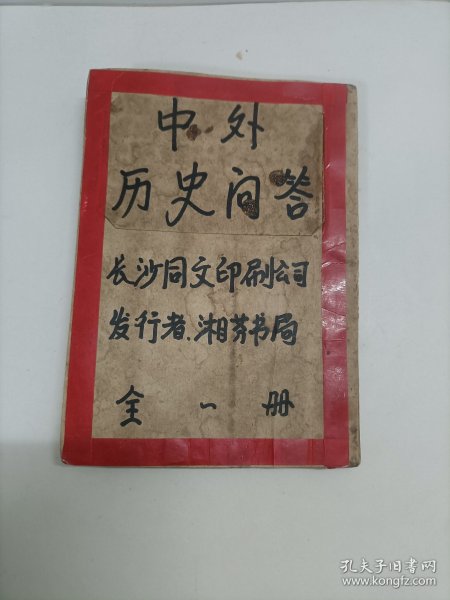 中外
历史问答
长沙同文印刷公司
发行者、湘芬书局
全一册
孔夫子旧书网
www.kongfz.com